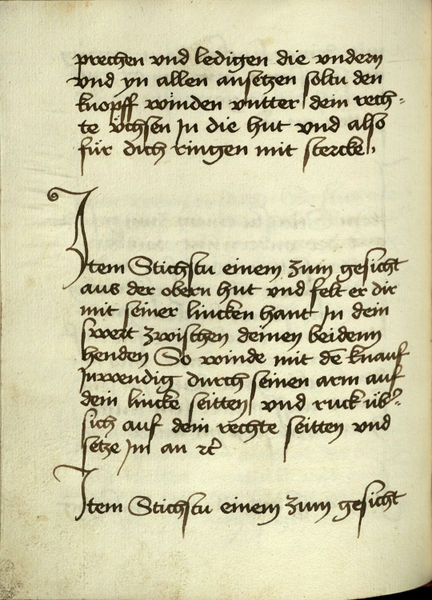 prechen vnd ledigen die vndern
vnd yn allen ansetzen soltu den
knopff winden vntter dein rech-
te vchsen In die hut vnd also
für dich ringen mit stercke.
Item Stichstu einem zum gesicht
aus der obern hut vnd felt er dir
mit seiner lincken hant In dein
swert zwischen deinen beidenn
henden So winde mit de knauf
Inwendig durch seinen arm auf
dein lincke seitten vnd ruck üb'-
sich auf dein rechte seitten vnd
setze Im an rc
Item Stichstu einem zum gesicht